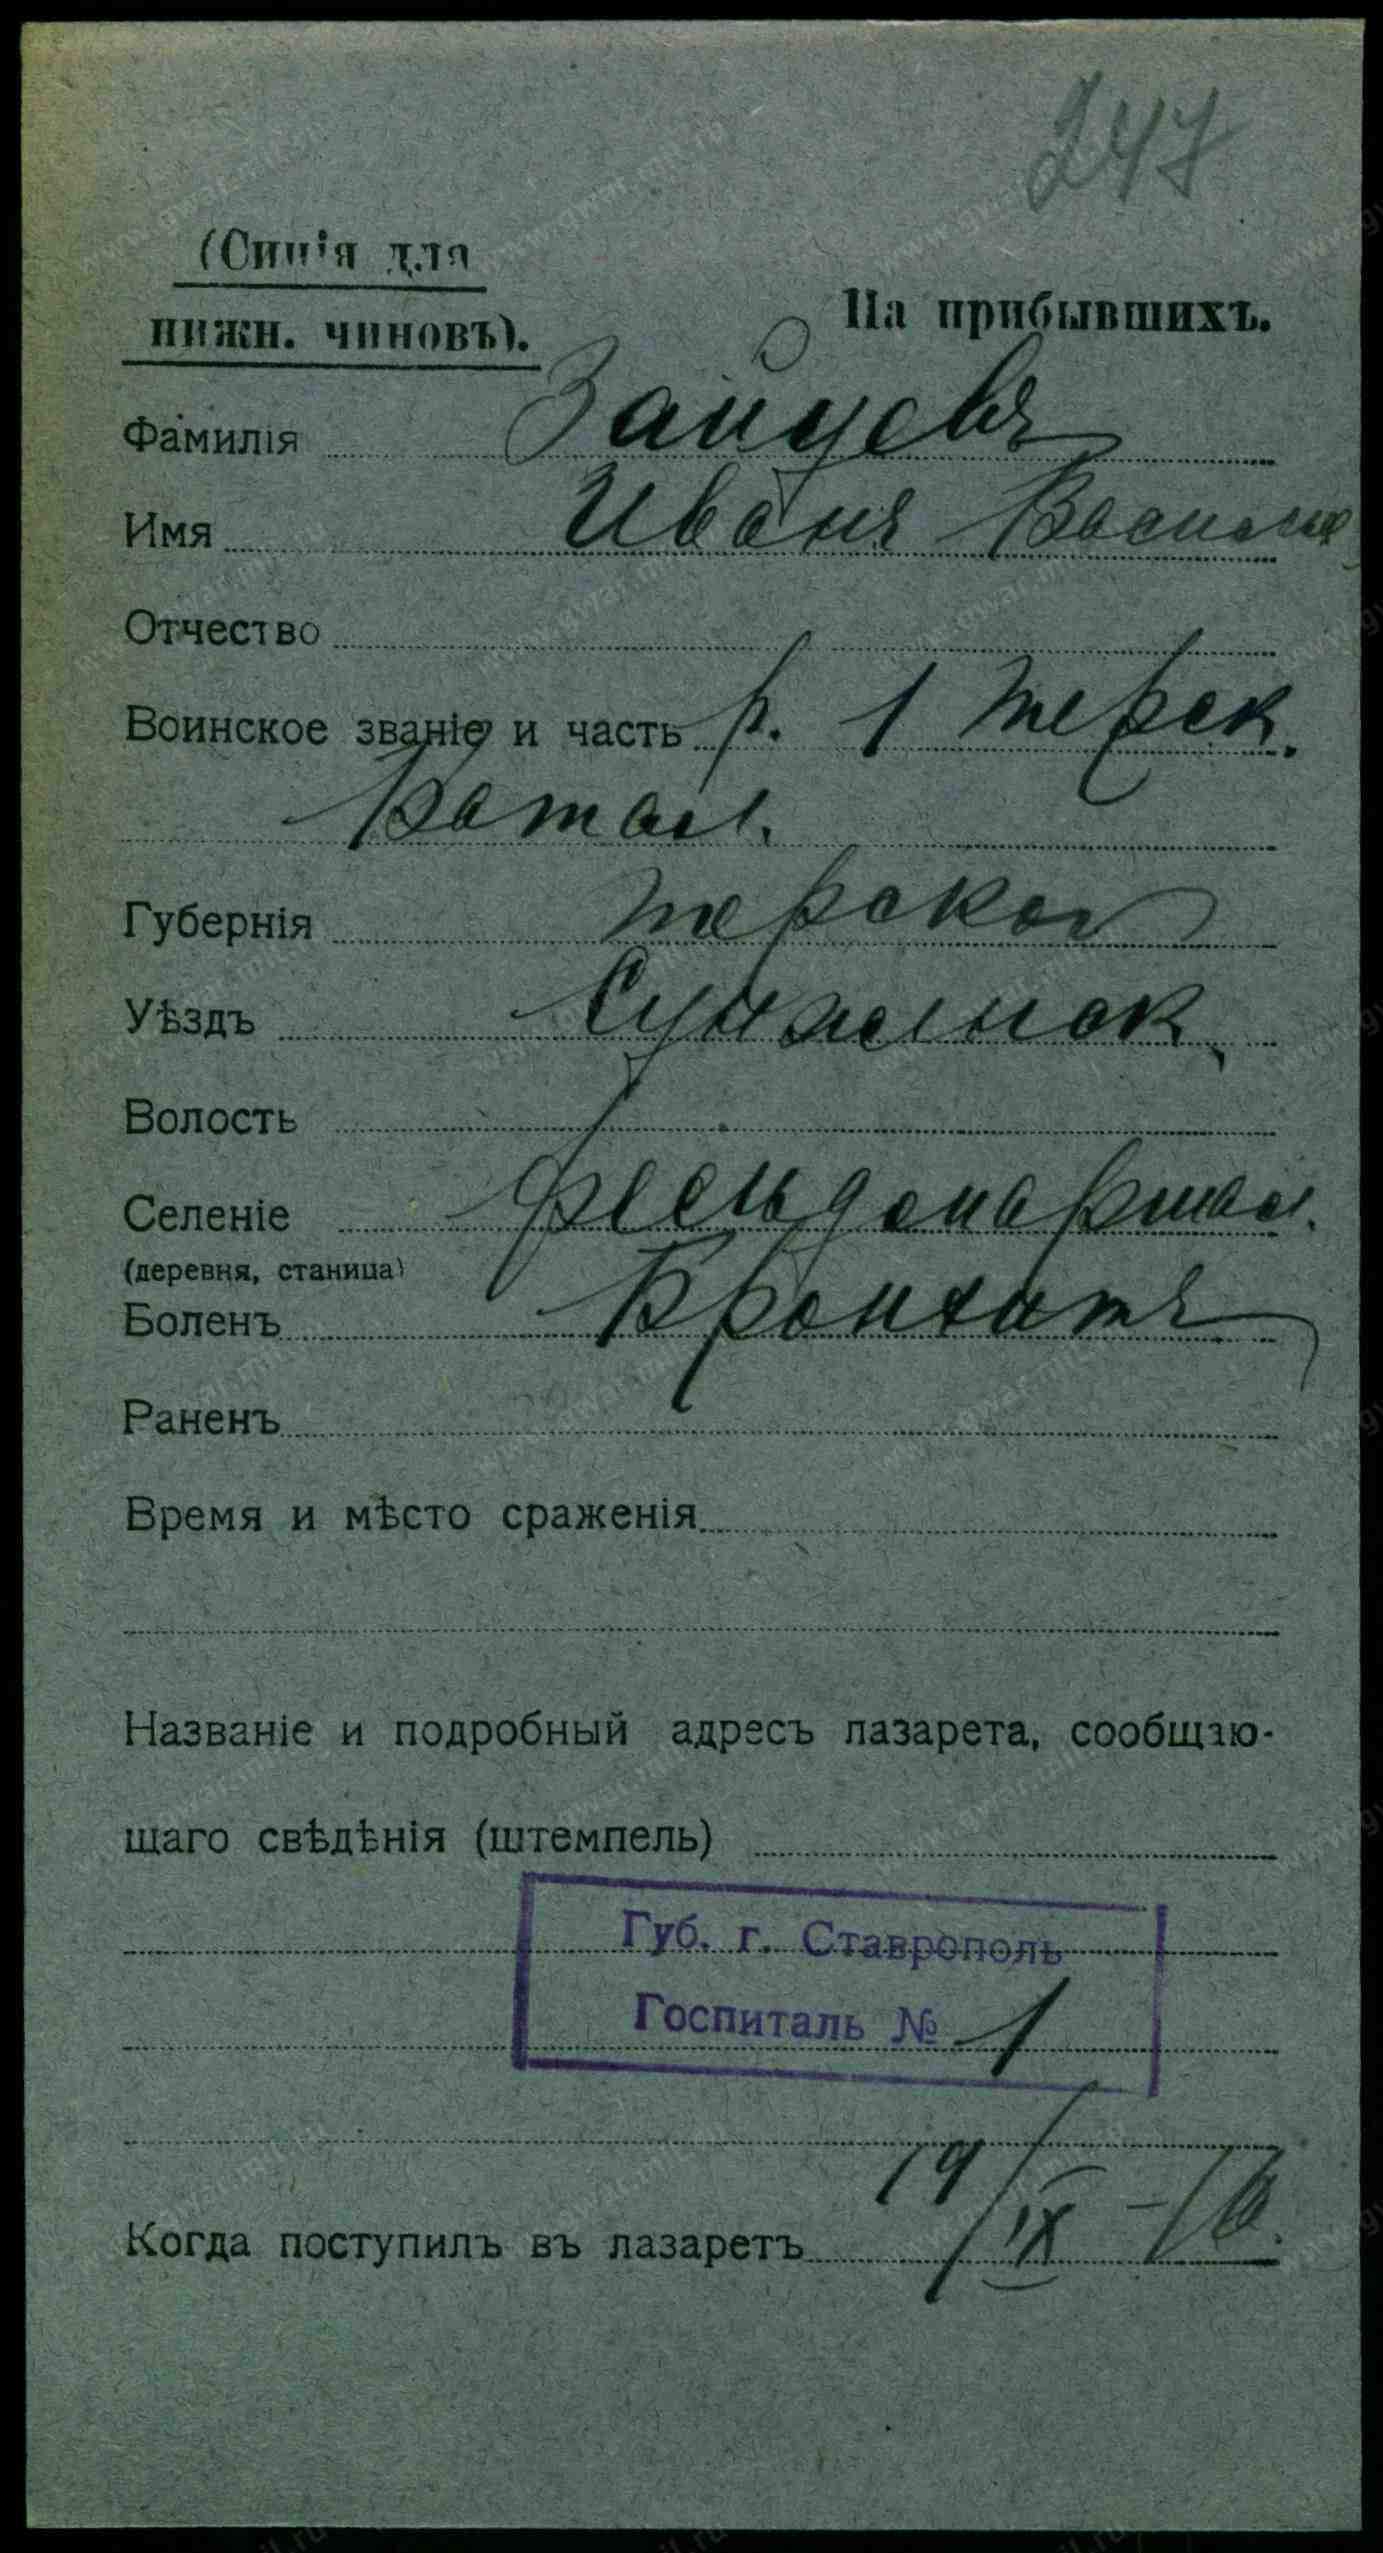 247
(Синія для
нижн. чиновъ).
На прибывшихъ.
Фамилія Зайцевъ
Имя Иванъ Василье
Отчество
Воинское званіе и часть р. 1 Терск.
Батал.
Губернія Терской
Уѣздъ Сунженск.
Волость
Селеніе Фельдомаршал.
(деревня, станица)
Боленъ Бронхитъ
Раненъ
Время и мѣсто сраженія
Названіе и подробный адресъ лазарета, сообщаю-
щаго свѣдѣнія (штемпель)
Губ. г. Ставрополь
Госпиталь № 1
Когда поступилъ въ лазаретъ 19/IX - 16.